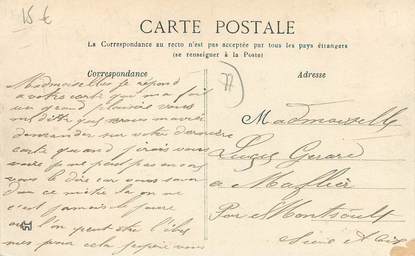 15 €
CARTE POSTALE
La Correspondance au recto n'est pas acceptée par tous les pays étrangers
(se renseigner à la Poste)
Correspondance
Adresse
77
Madmoiselles je repond
a votre carte qui ma fait
un grand plaisir vous
me dite que vous mavait
demander sur votre derniere
carte quand j'irais vous
voire je ne peut pas encore
vous le dire car vous savez
dan ce metier la on ne
c'est jamais le
ou l'on peut être
mes pour cela j'espoir vous
Madmoiselle
Gerard
a Maflier
Par Montsoult
Seine & Oise